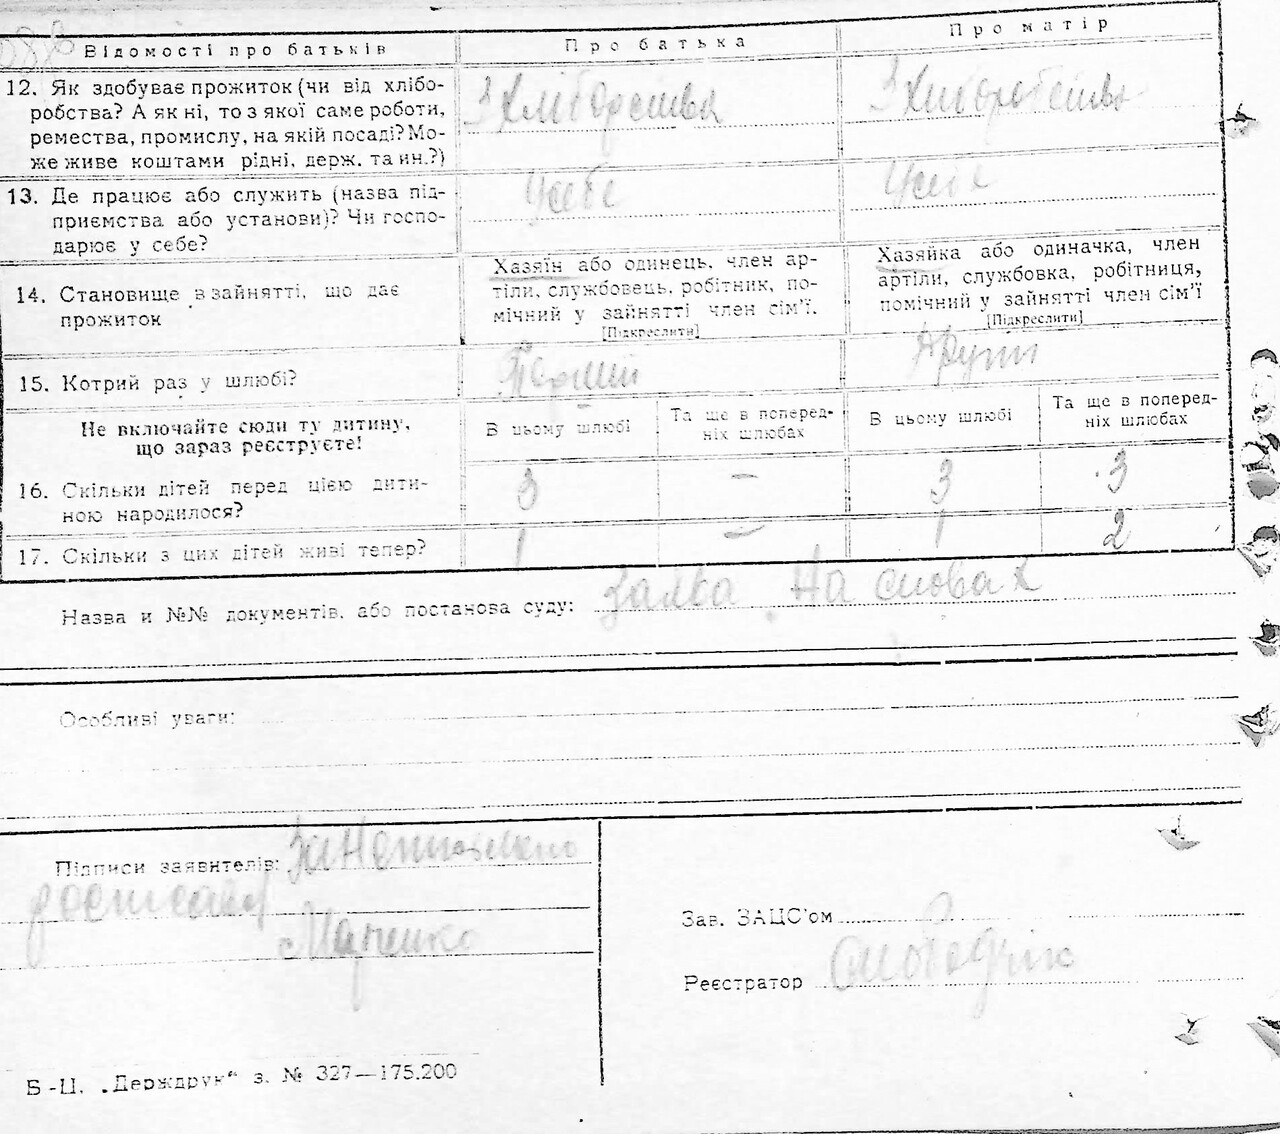 Відомості про батьків Про батька Про матір
12. Як здобуває прожиток (чи від хлібо-
робства? А як ні, то з якої саме роботи,
ремества, промислу, на якій посаді? Мо-
же живе коштами рідні, держ. та ин.?)
З Хліборобства З Хліборобства
13. Де працює або служить (назва під-
приємства або установи)? Чи госпо-
дарює у себе?
У себе У себе
14. Становище в зайнятті, що дає
прожиток
Хазяїн або одинець, член ар-
тіли, службовець, робітник, по-
мічний у зайнятті член сім'ї.
[Підкреслити]
Хазяйка або одиначка, член
артіли, службовка, робітниця,
помічний у зайнятті член сім'ї
[Підкреслити]
15. Котрий раз у шлюбі? Перший Другий
Не включайте сюди ту дитину,
що зараз реєструєте!
В цьому шлюбі
Та ще в поперед-
ніх шлюбах
В цьому шлюбі
Та ще в поперед-
ніх шлюбах
16. Скільки дітей перед цією дити-
ною народилося?
3 — 3 3
17. Скільки з цих дітей живі тепер?
1 — 1 2
Назва и №№ документів, або постанова суду: Заява на словах
Особливі уваги:
Підписи заявителів: За
Марченко
Зав. ЗАЦС'ом
Реєстратор
Б-Ц. „Держдрук“ з. № 327—175.200